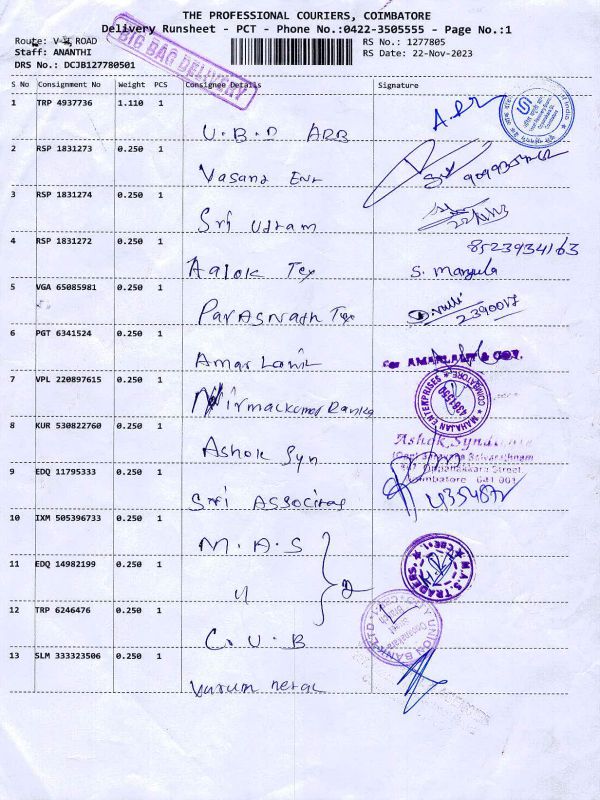 THE PROFESSIONAL COURIERS, COIMBATORE
Delivery Runsheet - PCT - Phone No.:0422-3505555 - Page No.:1
Route: ROAD
RS No.: 1277805
Staff: ANANTHI
RS Date: 22-Nov-2023
DRS No.: DCJB127780501
BIG BAG DELIVERY
S No Consignment No Weight PCS Consignee Details Signature
1 TRP 4937736 1.110 1
U.B.D ARB
2 RSP 1831273 0.250 1
Vasand Ent
3 RSP 1831274 0.250 1
Sri Uttam
22/11/23
4 RSP 1831272 0.250 1
8523934163
Aalok Tex S. Manjula
5 VGA 65085981 0.250 1
ParAsnath Tex 2390017
6 PGT 6341524 0.250 1
Amar Lamil
For AMARLAMI & CO.
7 VPL 220897615 0.250 1
Nirmalkumar Ranka
MAHAJAN ENTERPRISES COIMBATORE
8 KUR 530822760 0.250 1
Ashok Syn
Ashok Syndicate
Coimbatore 641 001
9 EDQ 11795333 0.250 1
Sri Associtas
10 IXM 505396733 0.250 1
M.A.S
11 EDQ 14982199 0.250 1
" 2
M.A.S. TRADERS CBE-1
12 TRP 6246476 0.250 1
C.U.B
CITY UNION BANK LTD
13 SLM 333323506 0.250 1
Varum netal